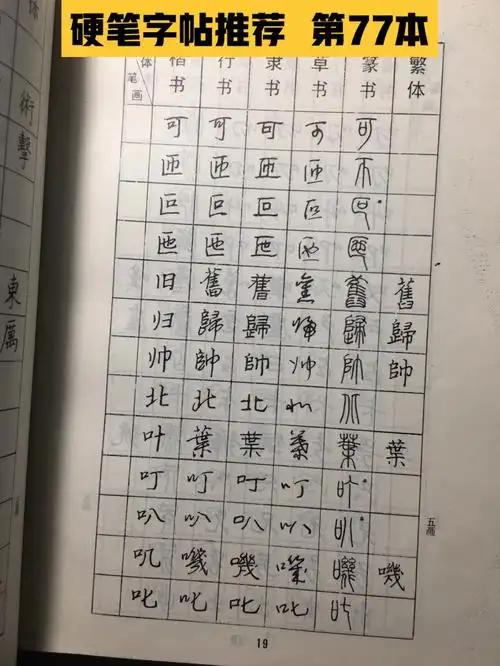 硬笔字帖推荐 第77本
体 笔画 楷书 行书 隶书 草书 篆书 繁体
可 可 可 可 可
匝 匝 匝 匝 匝
叵 叵 叵 叵 叵
匜 匜 匜 匜 匜
旧 舊 舊 舊 舊 舊
归 歸 歸 歸 歸 歸
帅 帥 帥 帅 帥 帥
北 北 北 北 北
叶 葉 葉 葉 葉 葉
叮 叮 叮 叮 叮
叭 叭 叭 叭 叭
叽 嘰 嘰 嘰 嘰 嘰
叱 叱 叱 叱 叱
五画
19
体
術
擊
東
厲